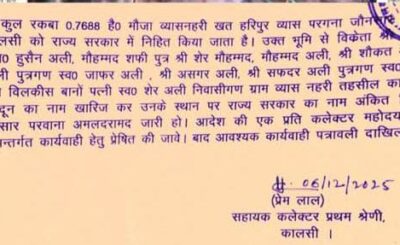 कुल रकबा 0.7688 है0 मौजा व्यासनहरी खत हरिपुर व्यास परगना जौनसार
कालसी को राज्य सरकार में निहित किया जाता है। उक्त भूमि से विक्रेता श्री
0 हुसैन अली, मौहम्मद शफी पुत्र श्री शेर मौहम्मद, मौहम्मद अली, श्री शौकत
ली पुत्रगण स्व0 जाफर अली, श्री असगर अली, श्री सफदर अली पुत्रगण स्व0
विलकीस बानों पत्नी स्व0 शेर अली निवासीगण ग्राम व्यास नहरी तहसील का
दून का नाम खारिज कर उनके स्थान पर राज्य सरकार का नाम अंकित
सार परवाना अमलदरामद जारी हो। आदेश की एक प्रति कलेक्टर महोदय
न्तर्गत कार्यवाही हेतु प्रेषित की जावे। बाद आवश्यक कार्यवाही पत्रावली दाखिल
06/12/2025
(प्रेम लाल)
सहायक कलेक्टर प्रथम श्रेणी,
कालसी ।